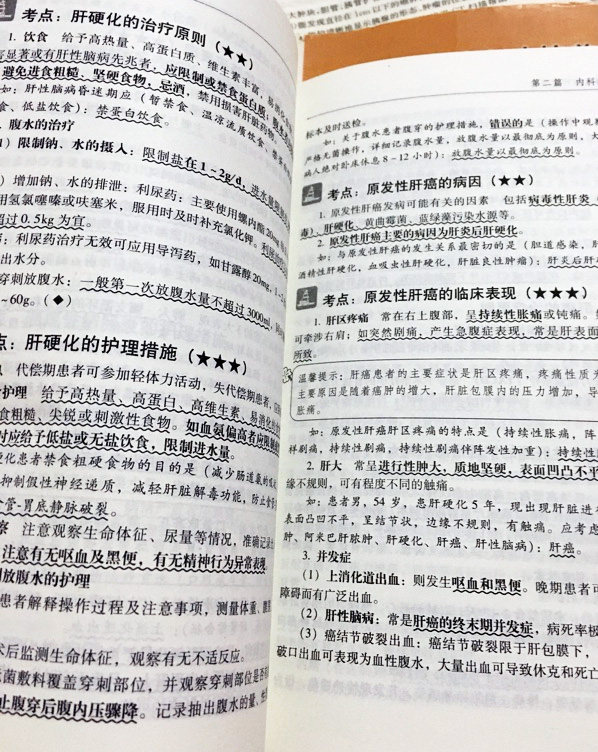 考点：肝硬化的治疗原则（★★）
1. 饮食 给予高热量、高蛋白质、维生素丰富、易消化
害显著或有肝性脑病先兆者，应限制或禁食蛋白质；
避免进食粗糙、坚硬食物，忌酒，禁用损害肝脏药物。
：肝性脑病昏迷期应（暂禁食、温凉流质饮食、
食、低盐饮食）：禁蛋白饮食。
腹水的治疗
）限制钠、水的摄入：限制盐在1～2g/d，进水量
）增加钠、水的排泄：利尿药：主要使用螺内酯
用氢氯噻嗪或呋塞米，服用时及时补充氯化钾。利
超过0.5kg为宜。
；利尿药治疗无效可应用导泻药，如甘露醇20mg，1～
出水分。
穿刺放腹水：一般第一次放腹水量不超过3000ml，
～60g。（◆）
点：肝硬化的护理措施（★★★）
代偿期患者可参加轻体力活动，失代偿期患者，
护理 给予高热量、高蛋白、高维生素、易消化
食粗糙、尖锐或刺激性食物。如血氨偏高者应限制
时应给予低盐或无盐饮食，限制进水量。
硬化患者禁食粗硬食物的目的是（减少肠道氨的
抑制假性神经递质，减轻肝脏解毒功能，防止
管-胃底静脉破裂。
察 注意观察生命体征、尿量等情况，准确记录
注意有无呕血及黑便，有无精神行为异常表现
放腹水的护理
患者解释操作过程及注意事项，测量体重、腹
术后监测生命体征，观察有无不适反应。
菌敷料覆盖穿刺部位，并观察穿刺部位是否
止腹穿后腹内压骤降。记录抽出腹水的量、
第二篇 内科
标本及时送检。
如：关于腹水患者腹穿的护理措施，错误的是（操作中观察
严格无菌操作，详细记录腹水量，放腹水量以最彻底为原则，大
病人绝对卧床休息8～12小时）：放腹水量以最彻底为原则。
考点：原发性肝癌的病因（★★）
1. 原发性肝癌发病可能有关的因素 包括病毒性肝炎（
毒）、肝硬化、黄曲霉菌、蓝绿藻污染水源等。
2. 原发性肝癌主要的病因为肝炎后肝硬化。
如：与原发性肝癌的发生关系最密切的是（胆道感染，肝
酒精性肝硬化，血吸虫性肝硬化，肝脏良性肿瘤）：肝炎后肝
考点：原发性肝癌的临床表现（★★★）
1. 肝区疼痛 常在右上腹部，呈持续性胀痛或钝痛。
可牵涉右肩；如突然剧痛，产生急腹症表现，常是肝表面
所致。
温馨提示：肝癌患者的主要症状是肝区疼痛，疼痛性质
主要原因是随着癌肿的增大，肝脏包膜内的压力增加，导
胀痛。
如：原发性肝癌肝区疼痛的特点是（持续性胀痛，阵
样剧痛，持续性剧痛，持续性剧痛伴阵发性加重）：持续性
2. 肝大 常呈进行性肿大，质地坚硬，表面凹凸不平
缘不规则，可有程度不同的触痛。
如：患者男，54岁，患肝硬化5年，现出现肝脏进
表面凸凹不平，呈结节状，边缘不规则，有触痛。应考虑
肿、阿米巴肝脓肿、肝硬化、肝癌、肝性脑病）：肝癌。
3. 并发症
（1）上消化道出血：则发生呕血和黑便。晚期患者可
障碍而有广泛出血。
（2）肝性脑病：常是肝癌的终末期并发症，病死率
（3）癌结节破裂出血：癌结节破裂限于肝包膜下，
破口出血可表现为血性腹水，大量出血可导致休克和死亡